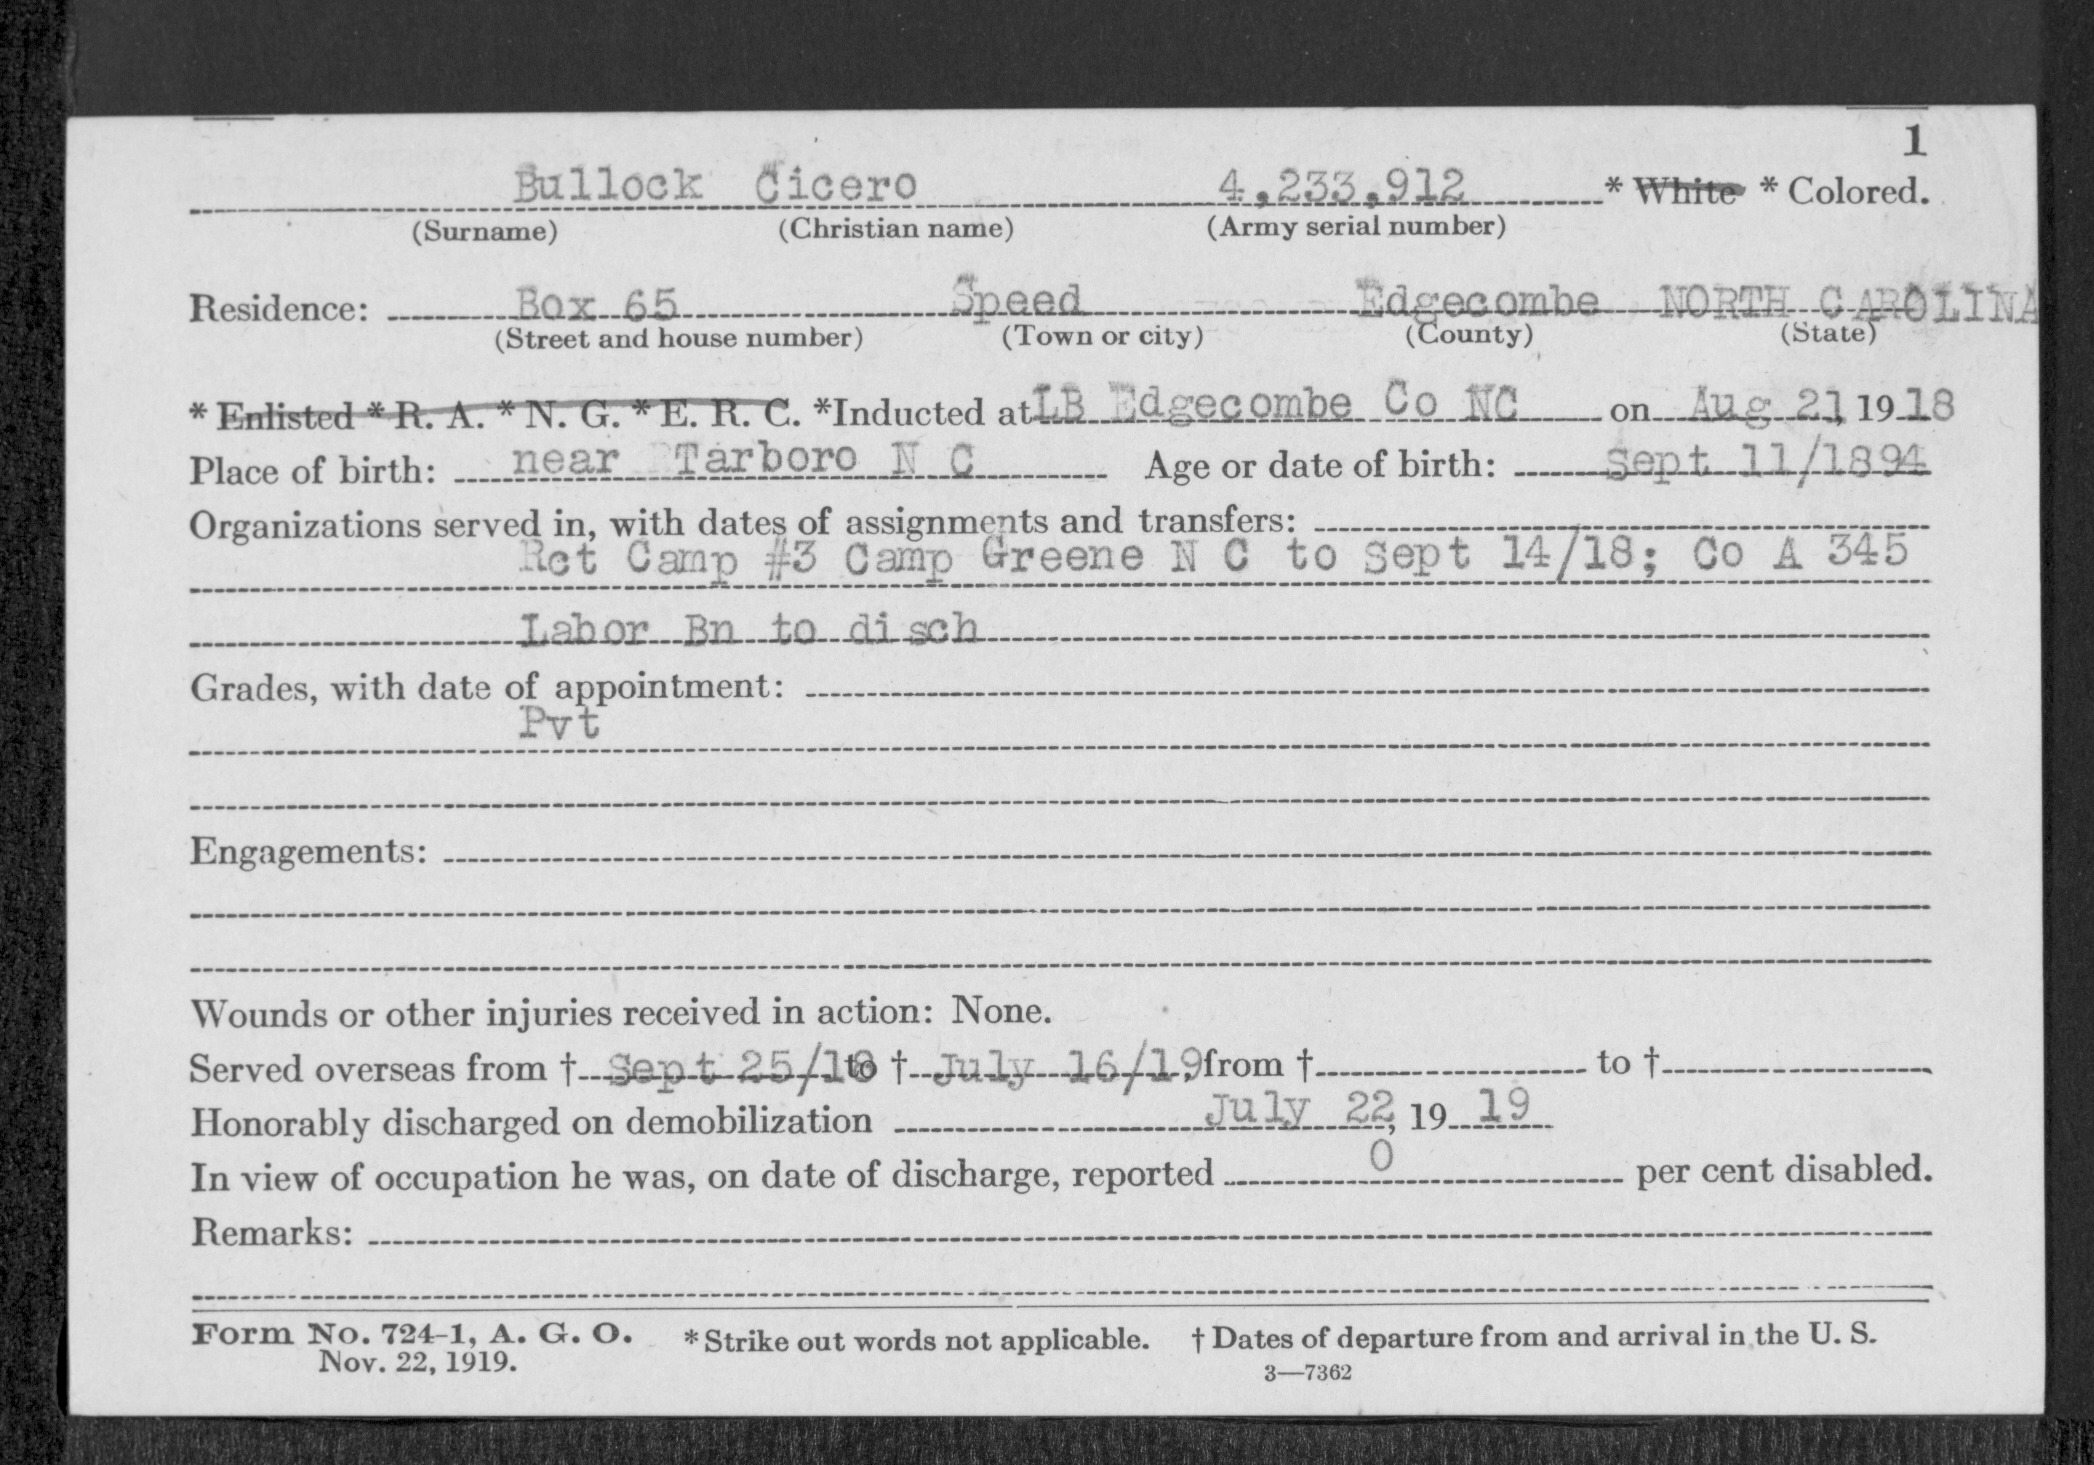 1
Bullock Cicero 4,233,912 * White * Colored.
(Surname) (Christian name) (Army serial number)
Residence: Box 65 Speed Edgecombe NORTH CAROLINA
(Street and house number) (Town or city) (County) (State)
* Enlisted * R. A. * N. G. * E. R. C. *Inducted at LB Edgecombe Co NC on Aug 21, 1918
Place of birth: near Tarboro N C Age or date of birth: Sept 11/1894
Organizations served in, with dates of assignments and transfers:
Rct Camp #3 Camp Greene N C to Sept 14/18; Co A 345
Labor Bn to disch
Grades, with date of appointment:
Pvt
Engagements:
Wounds or other injuries received in action: None.
Served overseas from † Sept 25/18 to † July 16/19, from † to †
Honorably discharged on demobilization July 22, 19 19
In view of occupation he was, on date of discharge, reported 0 per cent disabled.
Remarks:
Form No. 724-1, A. G. O. * Strike out words not applicable. † Dates of departure from and arrival in the U. S.
Nov. 22, 1919. 3—7362